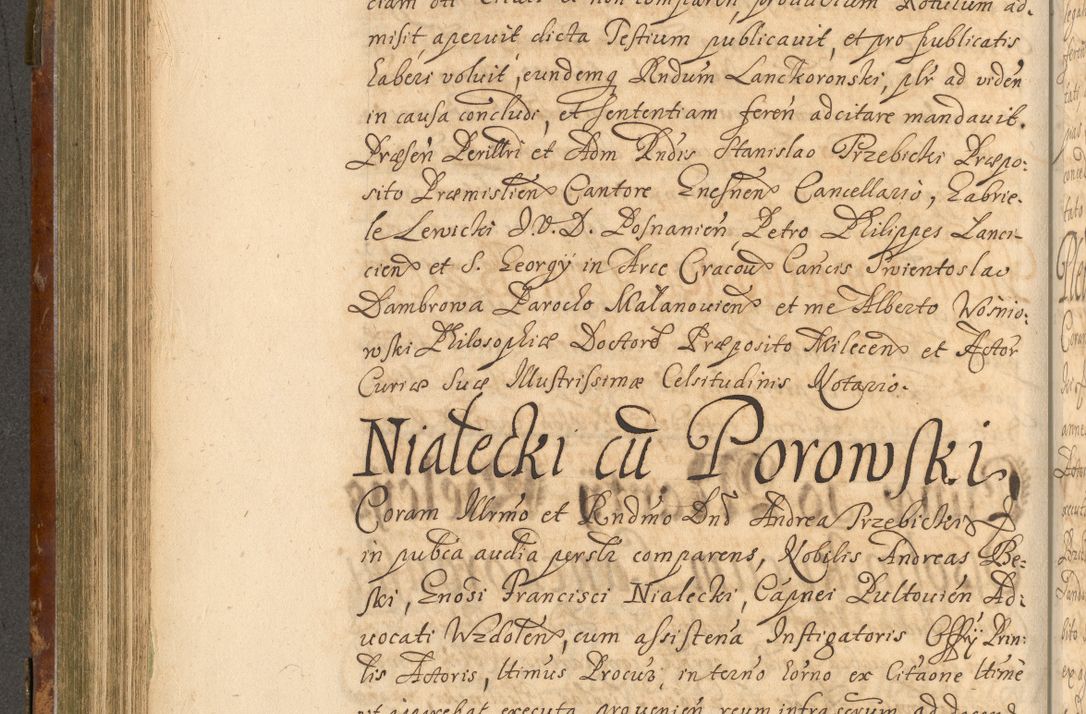 misit, aperuit dicta Testium publicavit, et pro publicatis
haberi voluit, eundemq Rndum Lanckoronski, plr ad viden
in causa concludi, et sententiam feren adcitare mandavit.
Præsen Perillri et Adm Rndis Stanislao Trzebicki Præpo:
sito Præmislien Cantore Gnesnen Cancellario, Gabrie-
le Lewicki J.V.D. Posnanien, Petro Philippes Lanci-
cien et S. Georgÿ in Arce Cracov Cancis Swientoslao
Dambrowa Parocho Malanovien et me Alberto Wosnio:
wski Philosophiæ Doctore Præposito Milecen et Actor
Curiæ Suæ Illustrissimæ Celsitudinis Notario.
Niałecki cū Porowski,
Coram Illrmo et Rndmo Dno Andrea Trzebicki
in pubca audia perslr comparens, Nobilis Andreas Be:
ski, Gnosi Francisci Niałecki, Capnei Pultovien Ad:
vocati Wzdolen, cum assistena Instigatoris Offÿ Prin:
lis Actoris, ltimus Procur, in terno horno ex Citaone ltime